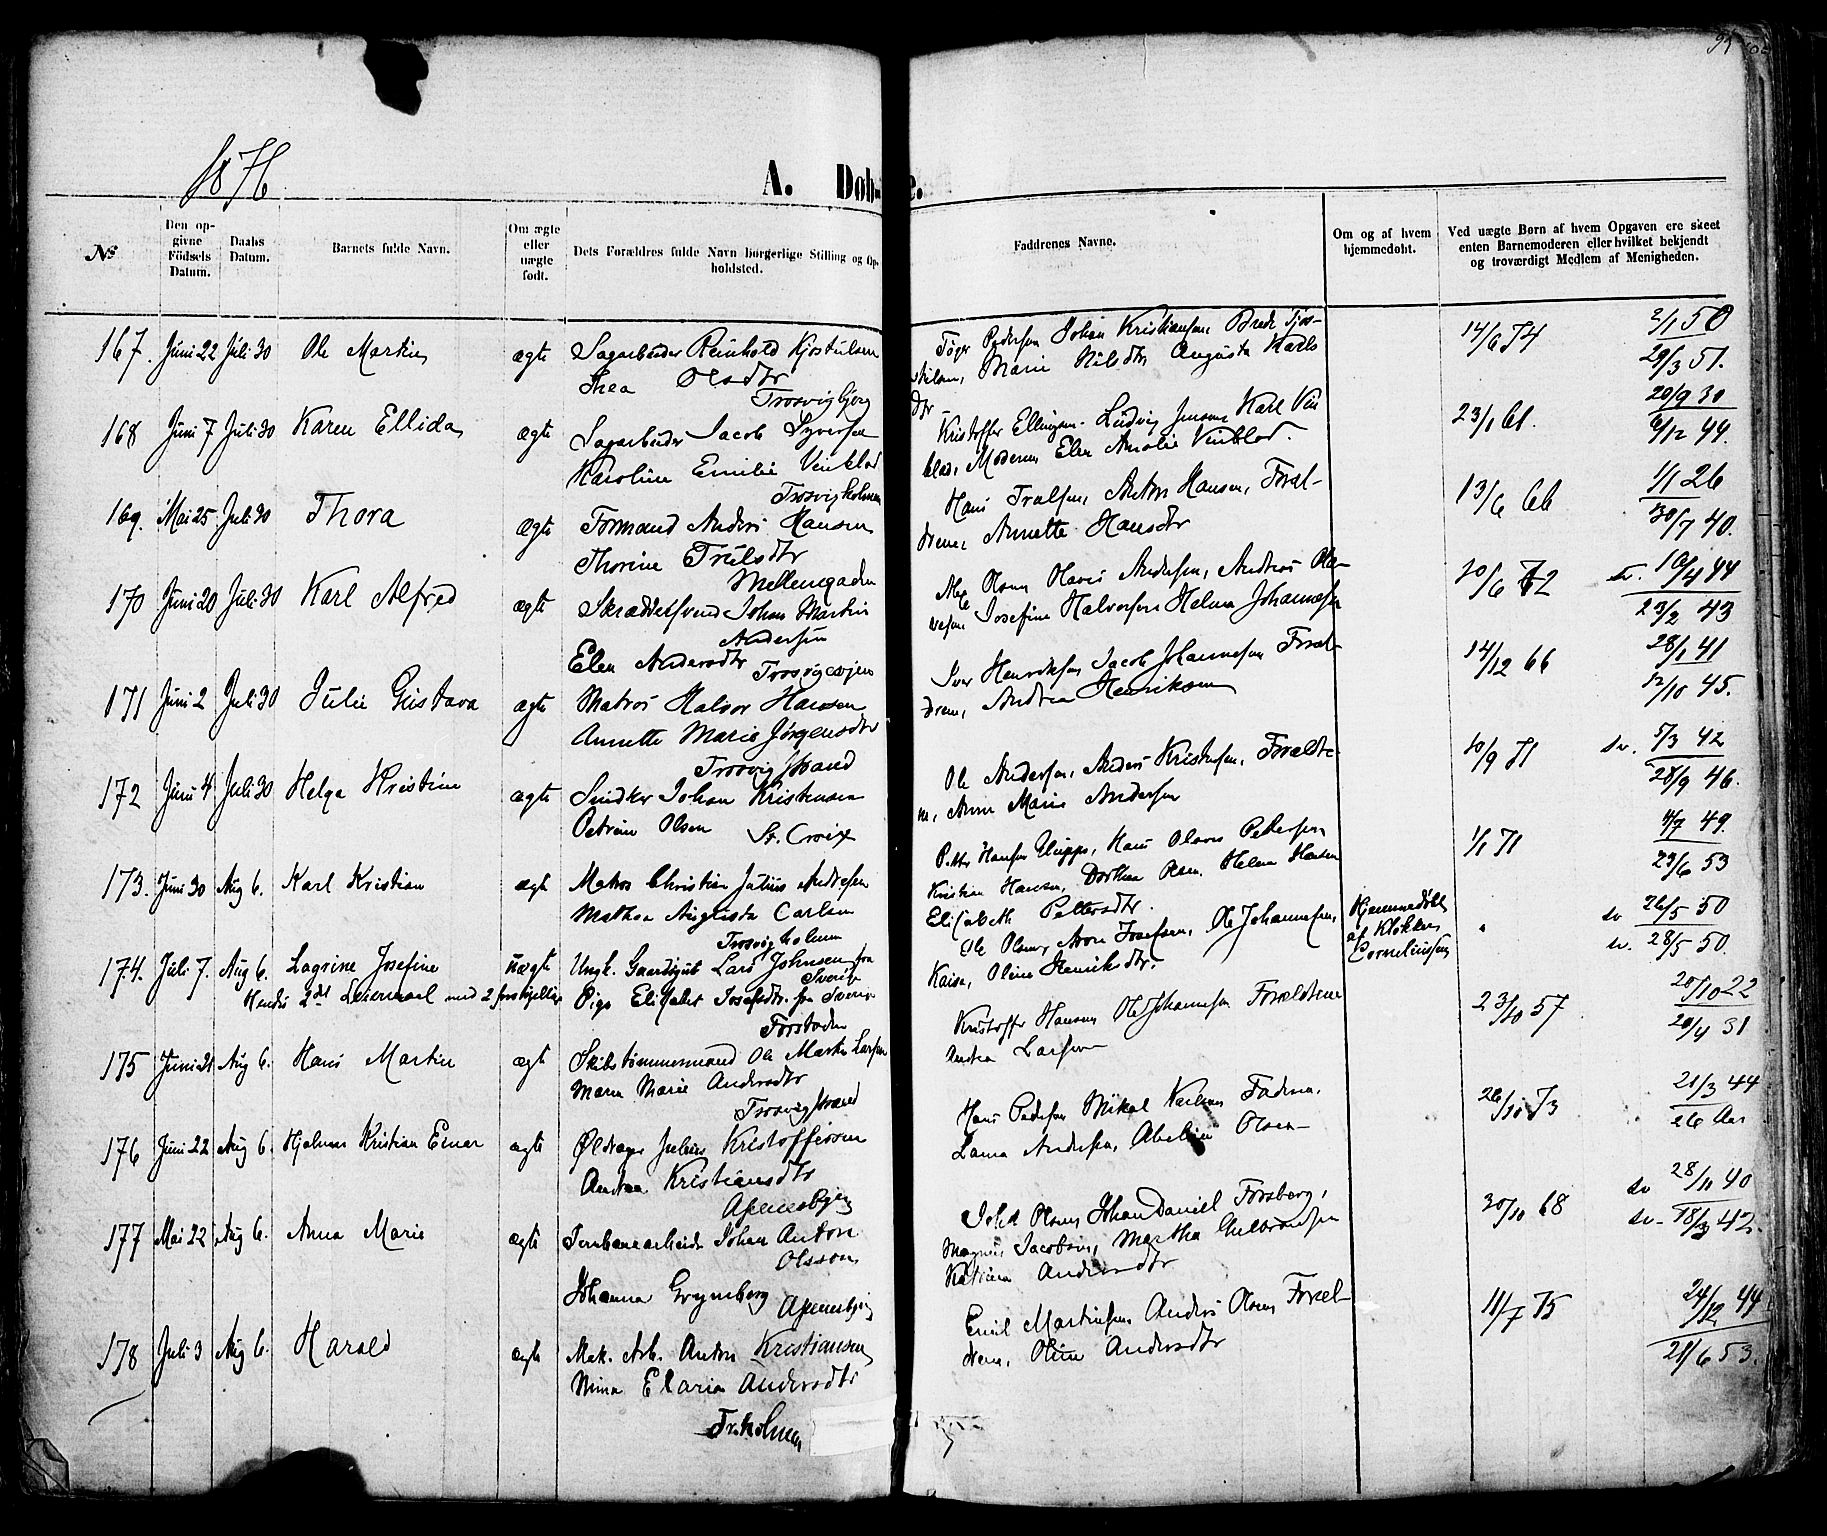 1876
A. Døb- e.
№
Den op-
givne
Födsels
Datum.
Daabs
Datum.
Barnets fulde Navn.
Om ægte
eller
uægte
født.
Dets Forældres fulde Navn borgerlige Stilling og Op-
holdsted.
Faddrenes Navne.
Om og af hvem
hjemmedøbt.
Ved uægte Børn af hvem Opgaven ere skeet
enten Barnemoderen eller hvilket bekjendt
og troværdigt Medlem af Menigheden.
167. Juni 22 Juli 30 Ole Martin ægte Sagarbeider Reinhold Kjostulsen
Thea Olsdtr
Trosvigbjerg
Pedersen Johan Kristiansen
Marie Nilsdtr Augusta Karls
dtr
14/6 74 2/1 50
29/3 51.
168 Juni 7 Juli 30 Karen Ellida ægte Sagarbeider Jacob Syversen
Karoline Emilie Vinblad
Trosvigholmen
Kristoffer Ellingsen. Ludvig Jensen Karl Vin
blad, Moderen Elen Amalie Vinblad.
23/1 61. 20/9 30
6/12 44.
169. Mai 25 Juli 30 Thora ægte Formand Anders Hansen
Thorine Trulsdtr
Mellemgaden
Hans Trulsen, Anton Hansen, Foræl-
drene, Annette Hansdtr
13/6 66 1/1 26
30/7 40.
170 Juni 20 Juli 30 Karl Alfred ægte Skræddersvend Johan Martin
Andersen
Elen Andersdtr Trosvigveien
Olsen Andersen, Andreas Ola-
vesen Josefine Halvorsen Helena Johannesen
20/6 72 sv. 10/4 44
23/2 43
171 Juni 2 Juli 30 Julie Gustava ægte Matros Halvor Hansen
Annette Marie Jørgensdtr
Trosvigstrand
Iver Henriksen Jacob Johannesen Foræl-
drene, Andrea Henriksen
14/12 66 28/1 41
12/10 45.
172 Juni 4 Juli 30 Helga Kristine ægte Snedker Johan Kristensen
Petrine Olsen St. Croix
Ole Andersen, Anders Kristensen, Forældre-
ne, Anne Marie Andersen
10/9 71 sv. 5/3 42
28/9 46.
173. Juni 30 Aug 6. Karl Kristian ægte Matros Christian Julius Andresen
Mathea Augusta Carlsen
Trosvigholmen
Petter Hansen Hans Olaves Pettersen
Kristian Hansen, Dorthea Olsen, Helene Hansen
Elisabeth Pettersdtr.
1/1 71 4/7 49.
23/6 53
174. Juli 7. Aug 6. Lagrine Josefine uægte Ungk. Gaardsgut Lars Johnsen fra
Sverige
Hendes 2det Leiermaal med 2 forskjellige Pige Elisabet Josefsdtr. fra Sverige
Forstaden
Ole Olsen, Aron Josefsen, Ole Johannesen,
Kaisa, Oline Henriksdtr.
Hjemmedøbt
af Klokker
Corneliussen
sv 26/5 50
sv. 28/5 50.
175 Juni 21 Aug 6. Hans Martin ægte Skibstømmermand Ole Martin Larsen
Maren Marie Andersdtr
Trosvigstrand
Kristoffer Hansen Ole Johannesen Forældrene
Andrea Larsen
23/10 57 20/10 22
20/4 31
176 Juni 22 Aug 6. Hjalmar Kristian Einar ægte Øldrager Julius Kristoffersen
Andrea Kristiansdtr
Apenesbjerg
Hans Pedersen Mikal Karlsen Faderen,
Laura Andersen, Abeline Olsen
26/10 73 21/3 44
26 Aar
177 Mai 22 Aug 6. Anna Marie ægte Jernbanearbeider Johan Anton
Olsson
Johanna Grymberg Apenesbjerg
Olsen Johan Daniel Forsberg,
Magnus Jacobsen, Martha Gulbrandsen
Katrina Andersdtr
30/10 68 sv 28/11 40
sv. 18/3 42.
178 Juli 3 Aug 6. Harald ægte Mek. Arb. Anton Kristiansen
Mina Elaria Andersdtr
Tr.holmen
Emil Martinsen Anders Olsen Foræl-
drene, Oline Andersdtr
11/7 75 24/12 44
21/6 53.